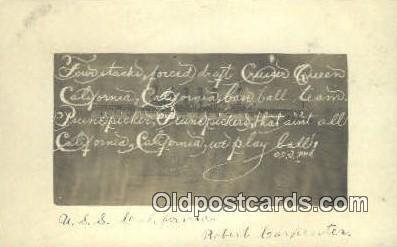 Four stacks, forced draft Cruiser Queen
California, California, base ball team
Prune picker, Prune picker, that aint all
California, California, we play ball,
U.S.S. California
Robert Carpenter
OldPostcards.com